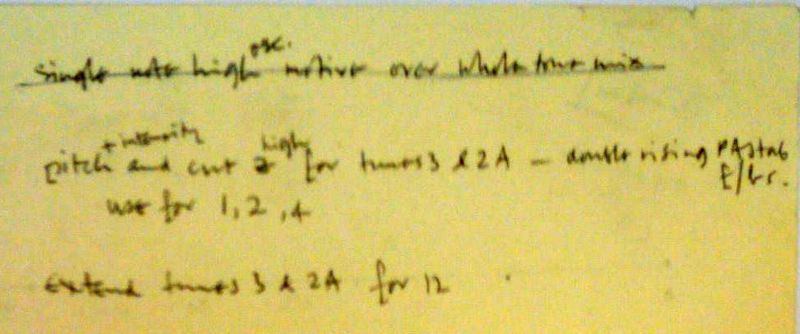 single note high osc. motive over whole tone mix
pitch + intensity and cut high for tunes 3 & 2A - double rising
use for 1, 2, 4
extend tunes 3 & 2A for 12